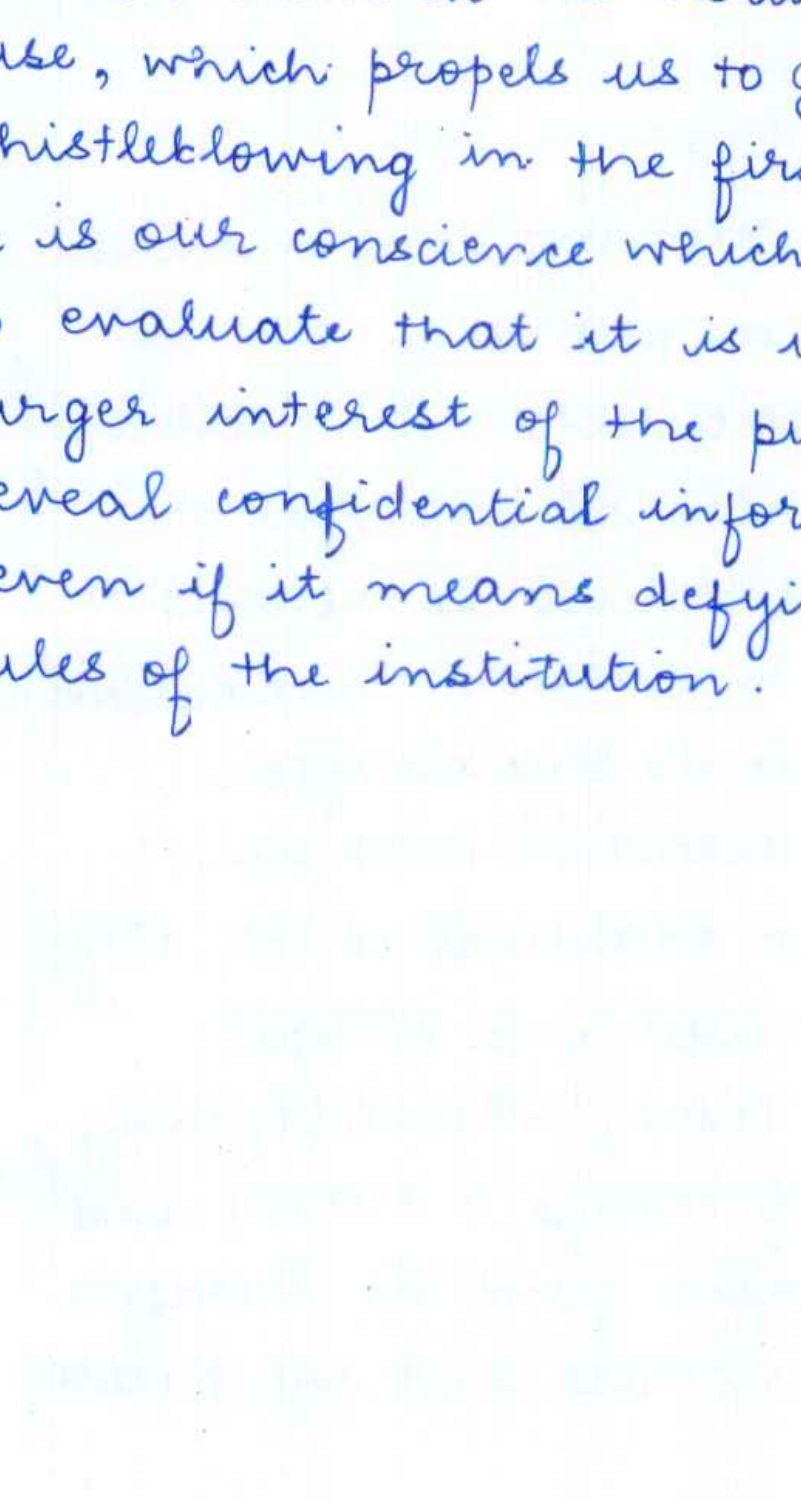 use, which propels us to g
histleblowing in the firs
is our conscience which
evaluate that it is i
arger interest of the pu
eveal confidential infor
even if it means defyi
ules of the institution.